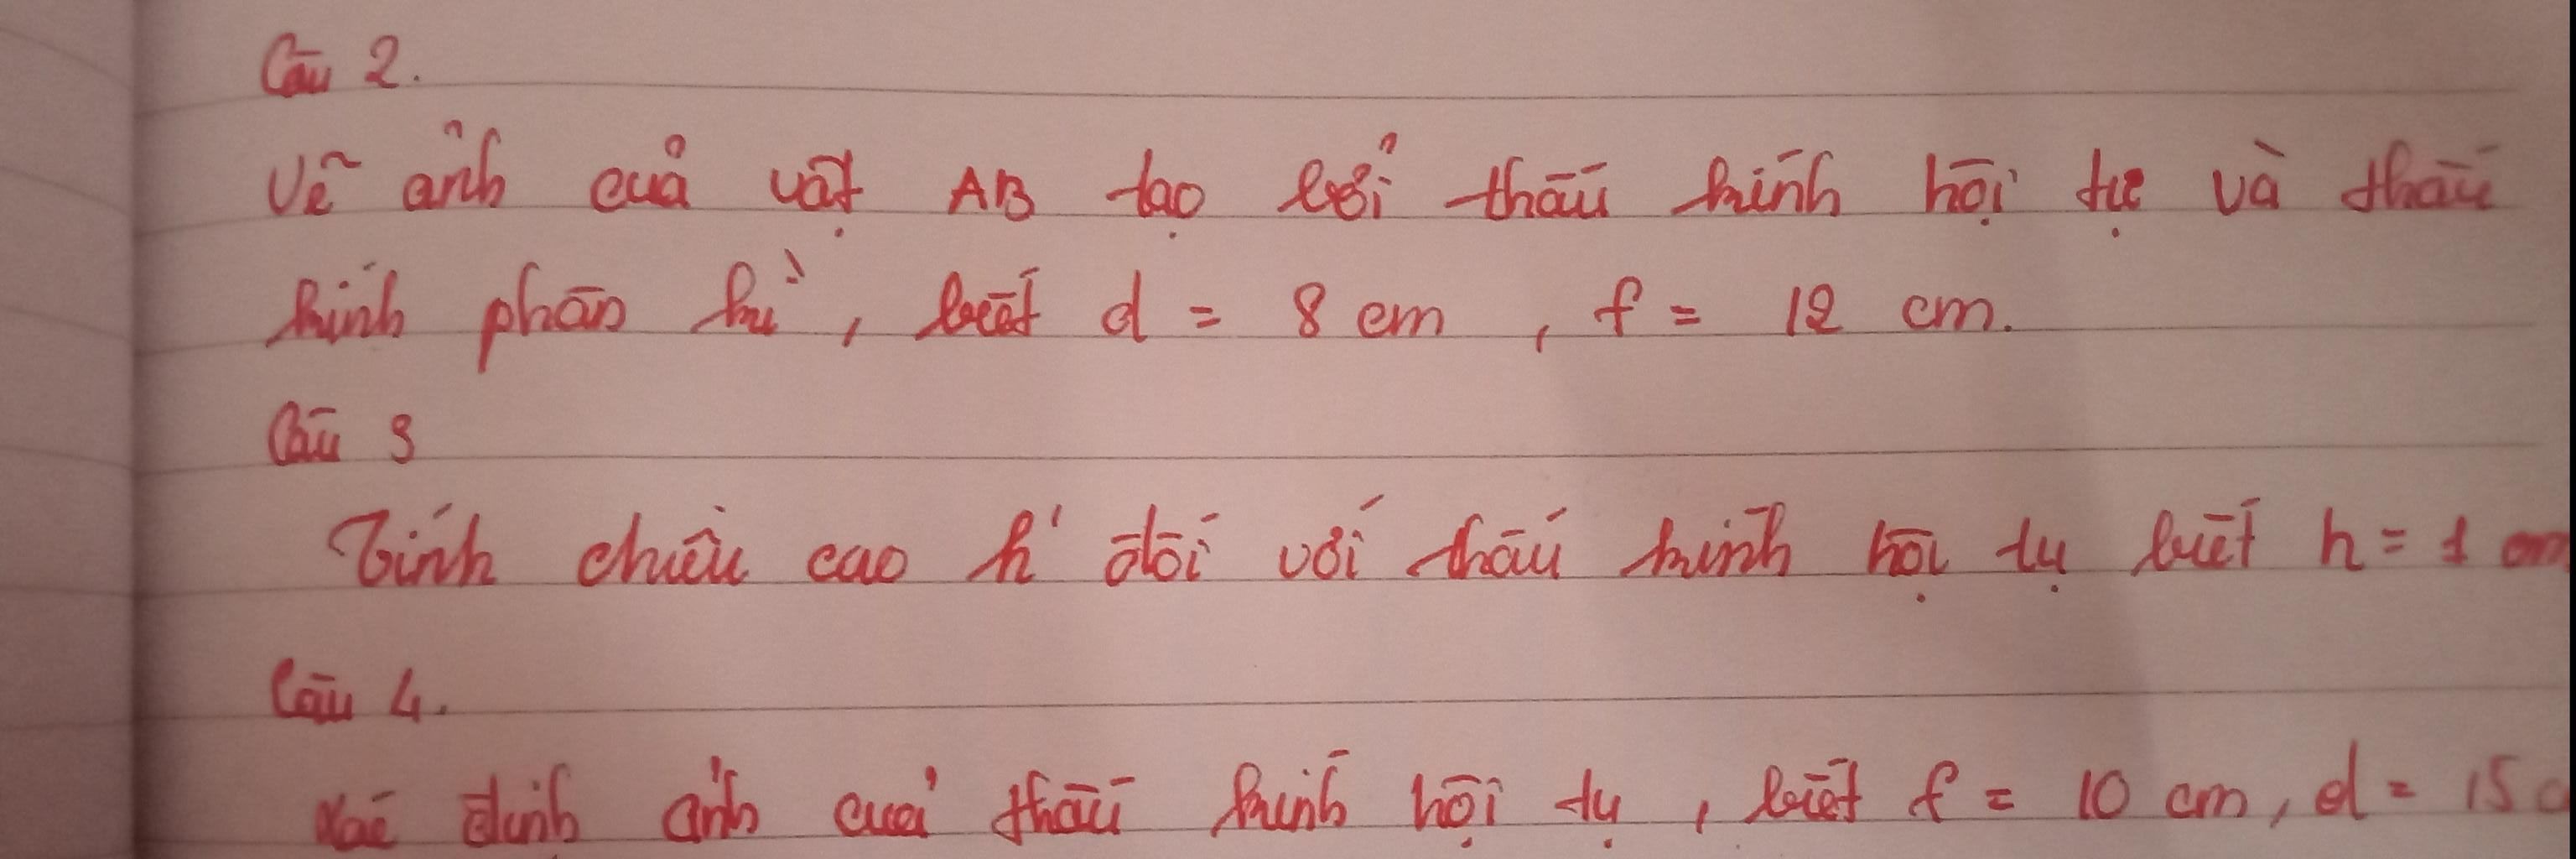 Câu 2.
Vẽ ảnh của vật AB tạo bởi thấu kính hội tụ và thấu
kính phân kì, biết d = 8 cm, f = 12 cm.
Câu 3
Tính chiều cao h' đối với thấu kính hội tụ biết h = 1 cm
Câu 4.
Xác định ảnh của thấu kính hội tụ, biết f = 10 cm, d = 15 c